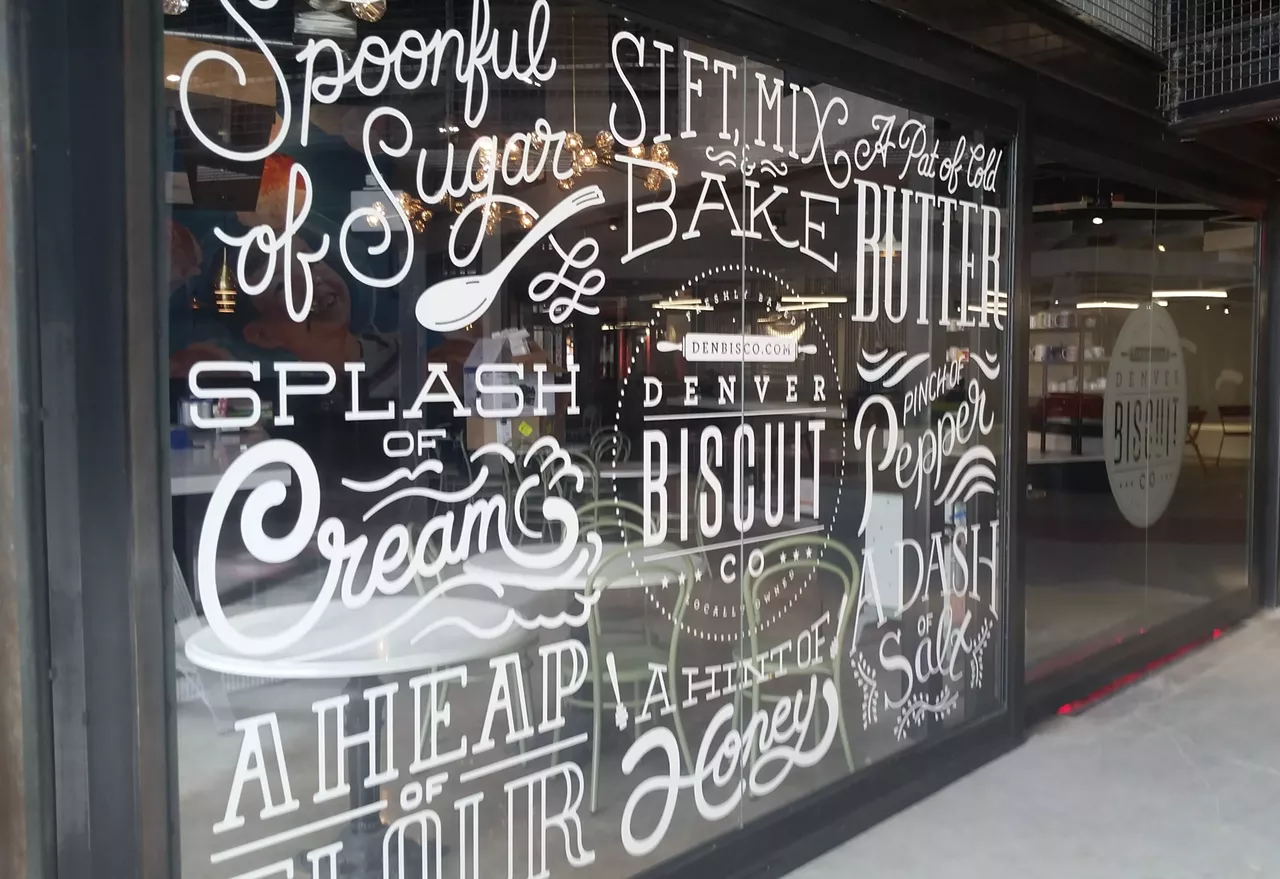 Spoonful
of Sugar
SPLASH
OF
Cream
A HEAP
OF
FLOUR
SIFT, MIX
&
BAKE
DENBISCO.COM
DENVER
BISCUIT
CO
LOCALLY OWNED
A HINT OF
Honey
A Pat of Cold
BUTTER
PINCH OF
Pepper
A DASH
OF
Salt
DENVER
BISCUIT
CO